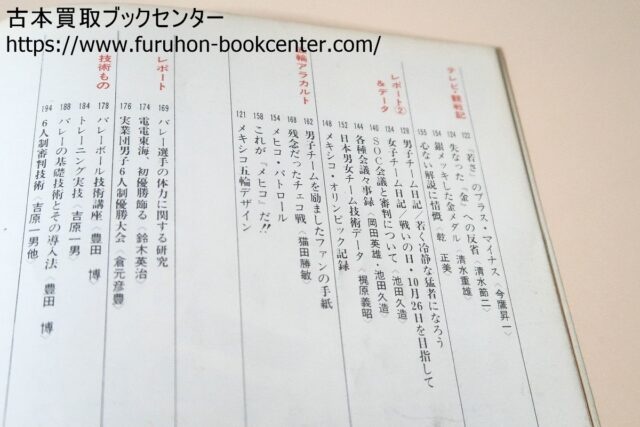 古本買取ブックセンター
https://www.furuhon-bookcenter.com/
テレビ・観戦記
122 “若さ”のプラス・マイナス〈今鷹昇一〉
124 失なった“金”への反省〈清水節二〉
154 銀メッキした金メダル〈清水重雄〉
155 心ない解説に憤慨〈乾 正美〉
レポート②
&データ
128 男子チーム日記/若く冷静な猛者になろう
124 女子チーム日記/戦いの日・10月26日を目指して
140 SOC会議と審判について〈池田久造〉
144 各種会議々事録〈岡田英雄・池田久造〉
152 日本男女チーム技術データ〈梶原義昭〉
148 メキシコ・オリンピック記録
輪アラカルト
162 男子チームを励ましたファンの手紙
168 残念だったチェコ戦〈猫田勝敏〉
154 メヒコ・パトロール
158 これが“メヒコ”だ!!
121 メキシコ五輪デザイン
レポート
169 バレー選手の体力に関する研究
174 電電東海、初優勝飾る〈鈴木英治〉
176 実業団男子6人制優勝大会〈倉元彦豊〉
技術もの
178 バレーボール技術講座〈豊田 博〉
184 トレーニング実技〈吉原一男〉
188 バレーの基礎技術とその導入法〈豊田 博〉
194 6人制審判技術〈吉原一男他〉